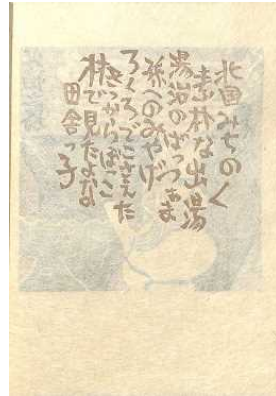 北国みちのく
素朴な出湯
湯治のばっつぁま
孫へのみやげ
ろくろでこさえた
きっからぼっこ
林で見たよな
田舎っ子